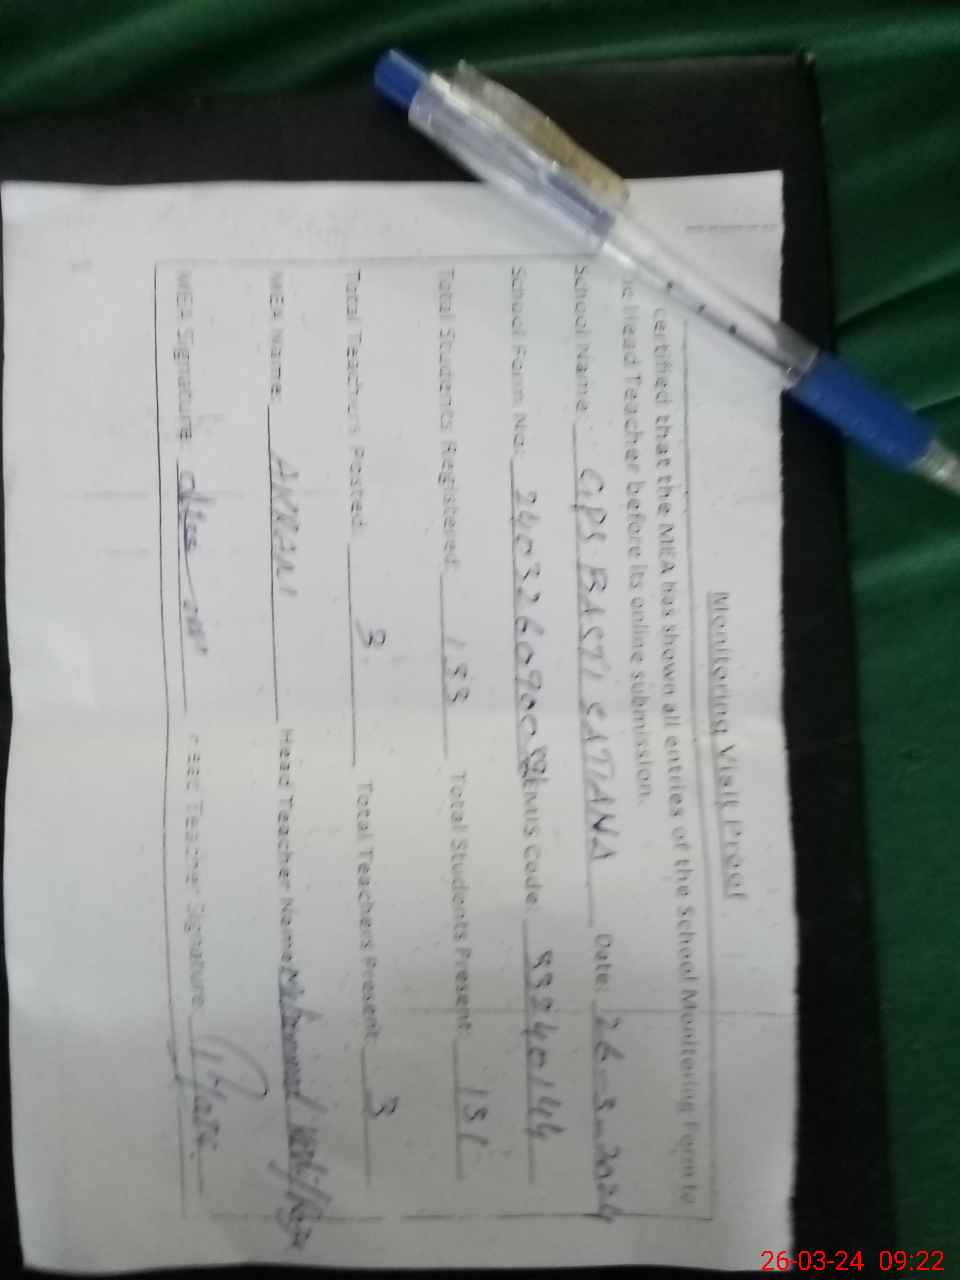 Monitoring Visit Proof
certified that the MEA has shown all entries of the School Monitoring Form to
Head Teacher before its online submission.
School Name: GPS BASTI SATIANA Date: 26-3-2024
School Form No: EMIS Code: 33240144
Total Students Registered: 133 Total Students Present: 131
Total Teachers Posted: 3 Total Teachers Present: 3
MEA Name: Head Teacher Name
MEA Signature: Head Teacher Signature:
26-03-24 09:22